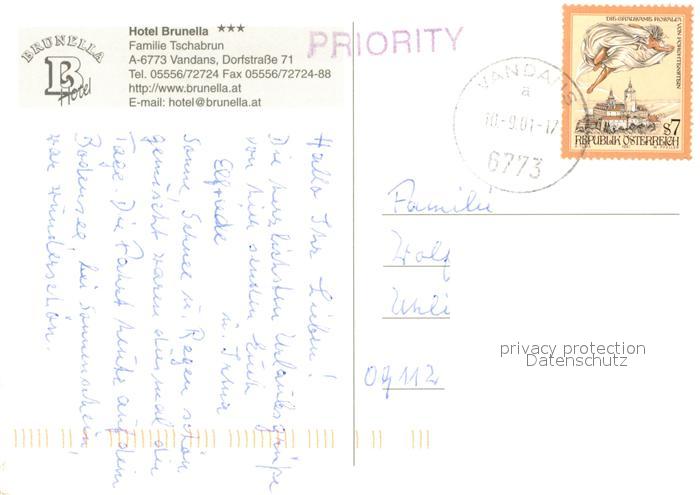 BRUNELLA
B
Hotel
Hotel Brunella ***
Familie Tschabrun
A-6773 Vandans, Dorfstraße 71
Tel. 05556/72724 Fax 05556/72724-88
http://www.brunella.at
E-mail: hotel@brunella.at
PRIORITY
VANDANS
a
10.-9.01-17
6773
DIE GRAUSAME ROSALIA
VON FORCHTENSTEIN
S7
REPUBLIK ÖSTERREICH
Hallo Ihr Lieben!
Die herzlichsten Urlaubsgrüße
von hier senden Euch
Elfriede
u. Irma
Sonne, Schnee u. Regen schön
gemischt waren diesmal die
Tage. Die Fahrt heute auf dem
Bodensee bei Sonnenschein,
war wunderschön.
Familie
Wolf
Uhli
09112
privacy protection
Datenschutz